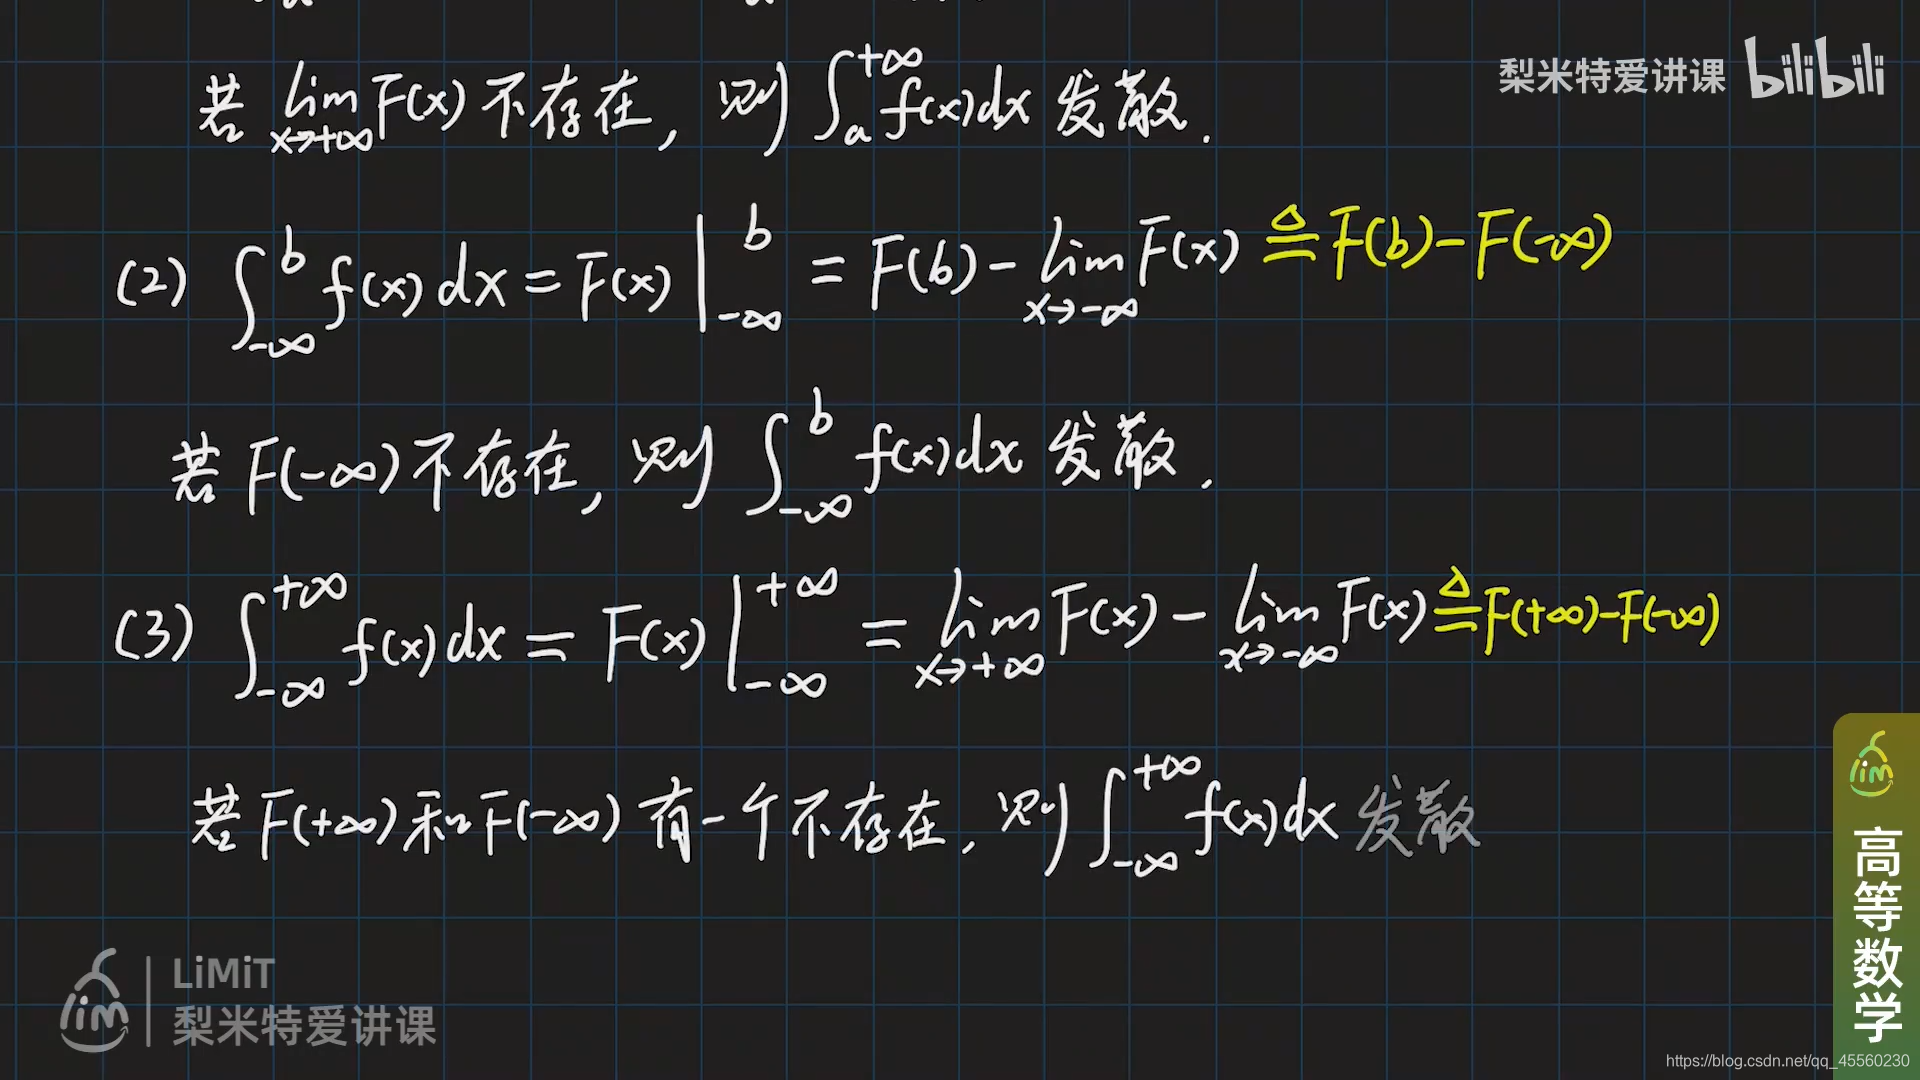 梨米特爱讲课 bilibili
若 lim_{x→+∞} F(x) 不存在, 则 ∫_a^{+∞} f(x)dx 发散.
(2) ∫_{-∞}^b f(x)dx = F(x)|_{-∞}^b = F(b) - lim_{x→-∞} F(x) ≜ F(b)-F(-∞)
若 F(-∞) 不存在, 则 ∫_{-∞}^b f(x)dx 发散.
(3) ∫_{-∞}^{+∞} f(x)dx = F(x)|_{-∞}^{+∞} = lim_{x→+∞} F(x) - lim_{x→-∞} F(x) ≜ F(+∞)-F(-∞)
若 F(+∞) 和 F(-∞) 有一个不存在, 则 ∫_{-∞}^{+∞} f(x)dx 发散
lim
高等数学
lim
LiMiT
梨米特爱讲课
https://blog.csdn.net/qq_45560230